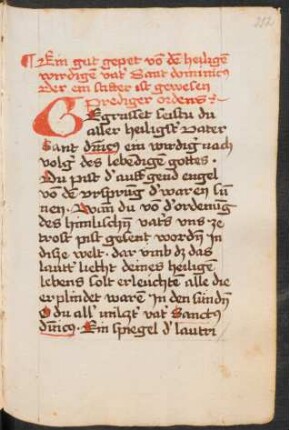 212
¶ Ein gut gepet vō dē heiligē
wirdigē vatʼ Sant dominicꝰ
Der ein stifter ist gewesen
prediger ordens
Gegrusset seistu du
aller heiligstʼ Vater
Sant dn̄icꝰ ein wirdigʼ nach
volgʼ des lebēdigē gottes ·
Du pist dʼ auffgend engel
vō dē vrsprūg dʼ warē sū
nen · Wan du vō dʼ ordenūg
des himlischn̄ vatʼs vns ze
trost pist gesent wordn̄ in
disze welt · dar vmb dz das
lautʼ liecht deines heiligē
lebens solt erleuchtē alle die
erplindet warē in den sündn̄
O du allʼ miltzʼ vatʼ Sanctꝰ
dn̄icꝰ · Ein spiegel dʼ lautri